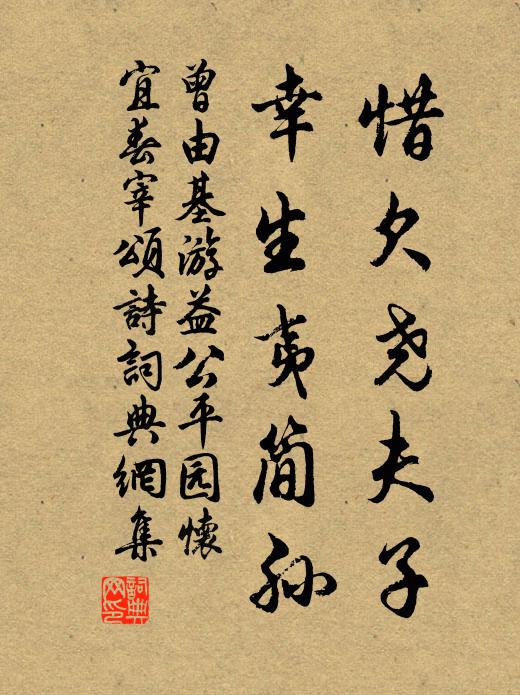 惜欠尧夫子
幸生夷简孙
曾由基游益公平园懷
宜春宰頌詩詞典網集
詞典网印